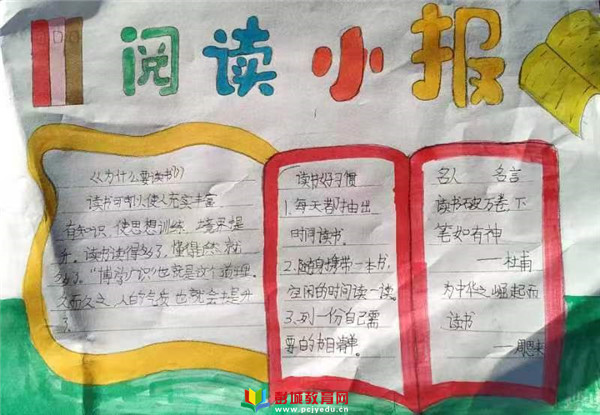 阅读小报
《为什么要读书》
读书可以使人充实丰富
有知识,使思想训练,境界提
升。读书读得多了,懂得自然就
多了。"博学广识"也就是这个道理。
久而久之,人的气质也就会去提升
了。
读书好习惯
1.每天都抽出
时间读书。
2.随身携带一本书,
空闲的时间读一读。
3.列一份自己需
要的书目清单。
名人 名言
读书破万卷,下
笔如有神
——杜甫
为中华之崛起而
读书
——周恩来
彭城教育网
www.pcjyedu.cn